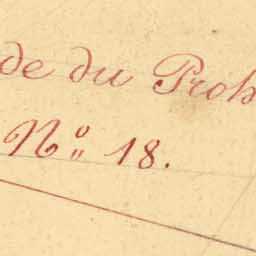 de du Prob
Nº 18.